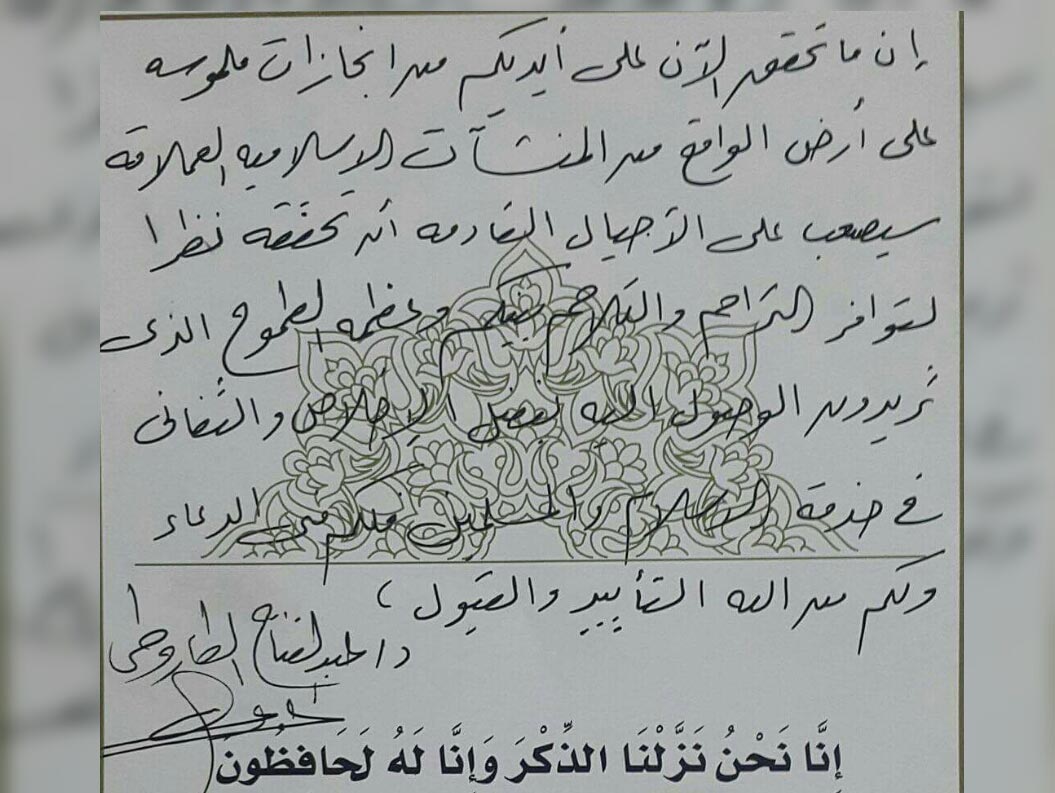 إن ما تحقق الآن على أيديكم من انجازات ملموسه
على أرض الواقع من المنشآت الإسلاميه العملاقه
سيصعب على الأجيال القادمه أن تحققه نظرا
لتوافر التراحم والتلاحم بينكم وعظمه الطموح الذى
تريدون الوصول اليه بفضل الإخلاص والتفانى
في خدمة الاسلام والمسلمين فلكم منى الدعاء
ولكم من الله التأييد والقبول ،
د/ عبدالفتاح الطاروطى
إِنَّا نَحْنُ نَزَّلْنَا الذِّكْرَ وَإِنَّا لَهُ لَحَافِظُونَ